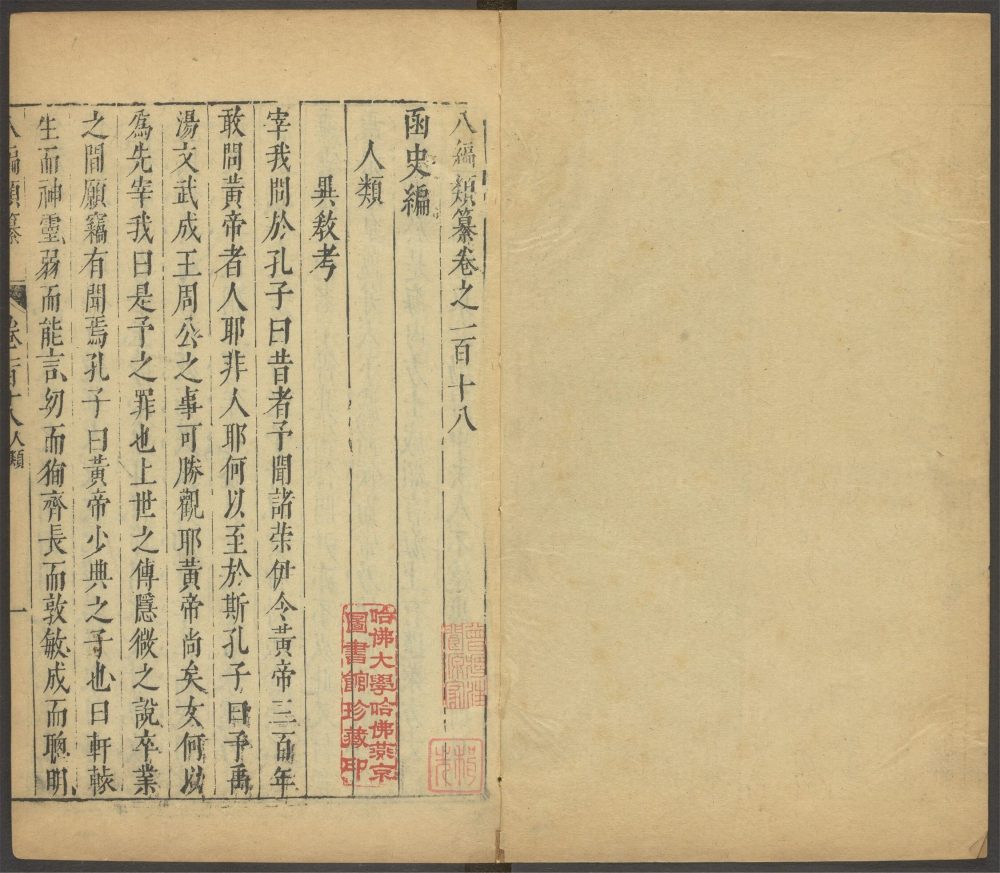 八編類纂卷之一百十八
函史編
人類
異教考
宰我問於孔子曰昔者予聞諸榮伊令黃帝三百年
敢問黃帝者人耶非人耶何以至於斯孔子曰予禹
湯文武成王周公之事可勝觀耶黃帝尚矣女何以
爲先宰我曰是予之罪也上世之傳隱微之說卒業
之間願竊有聞焉孔子曰黃帝少典之子也曰軒轅
生而神靈弱而能言幼而狥齊長而敦敏成而聰明
八編類纂
卷一百十八人類
一
哈佛大學哈佛燕京
圖書館珍藏印